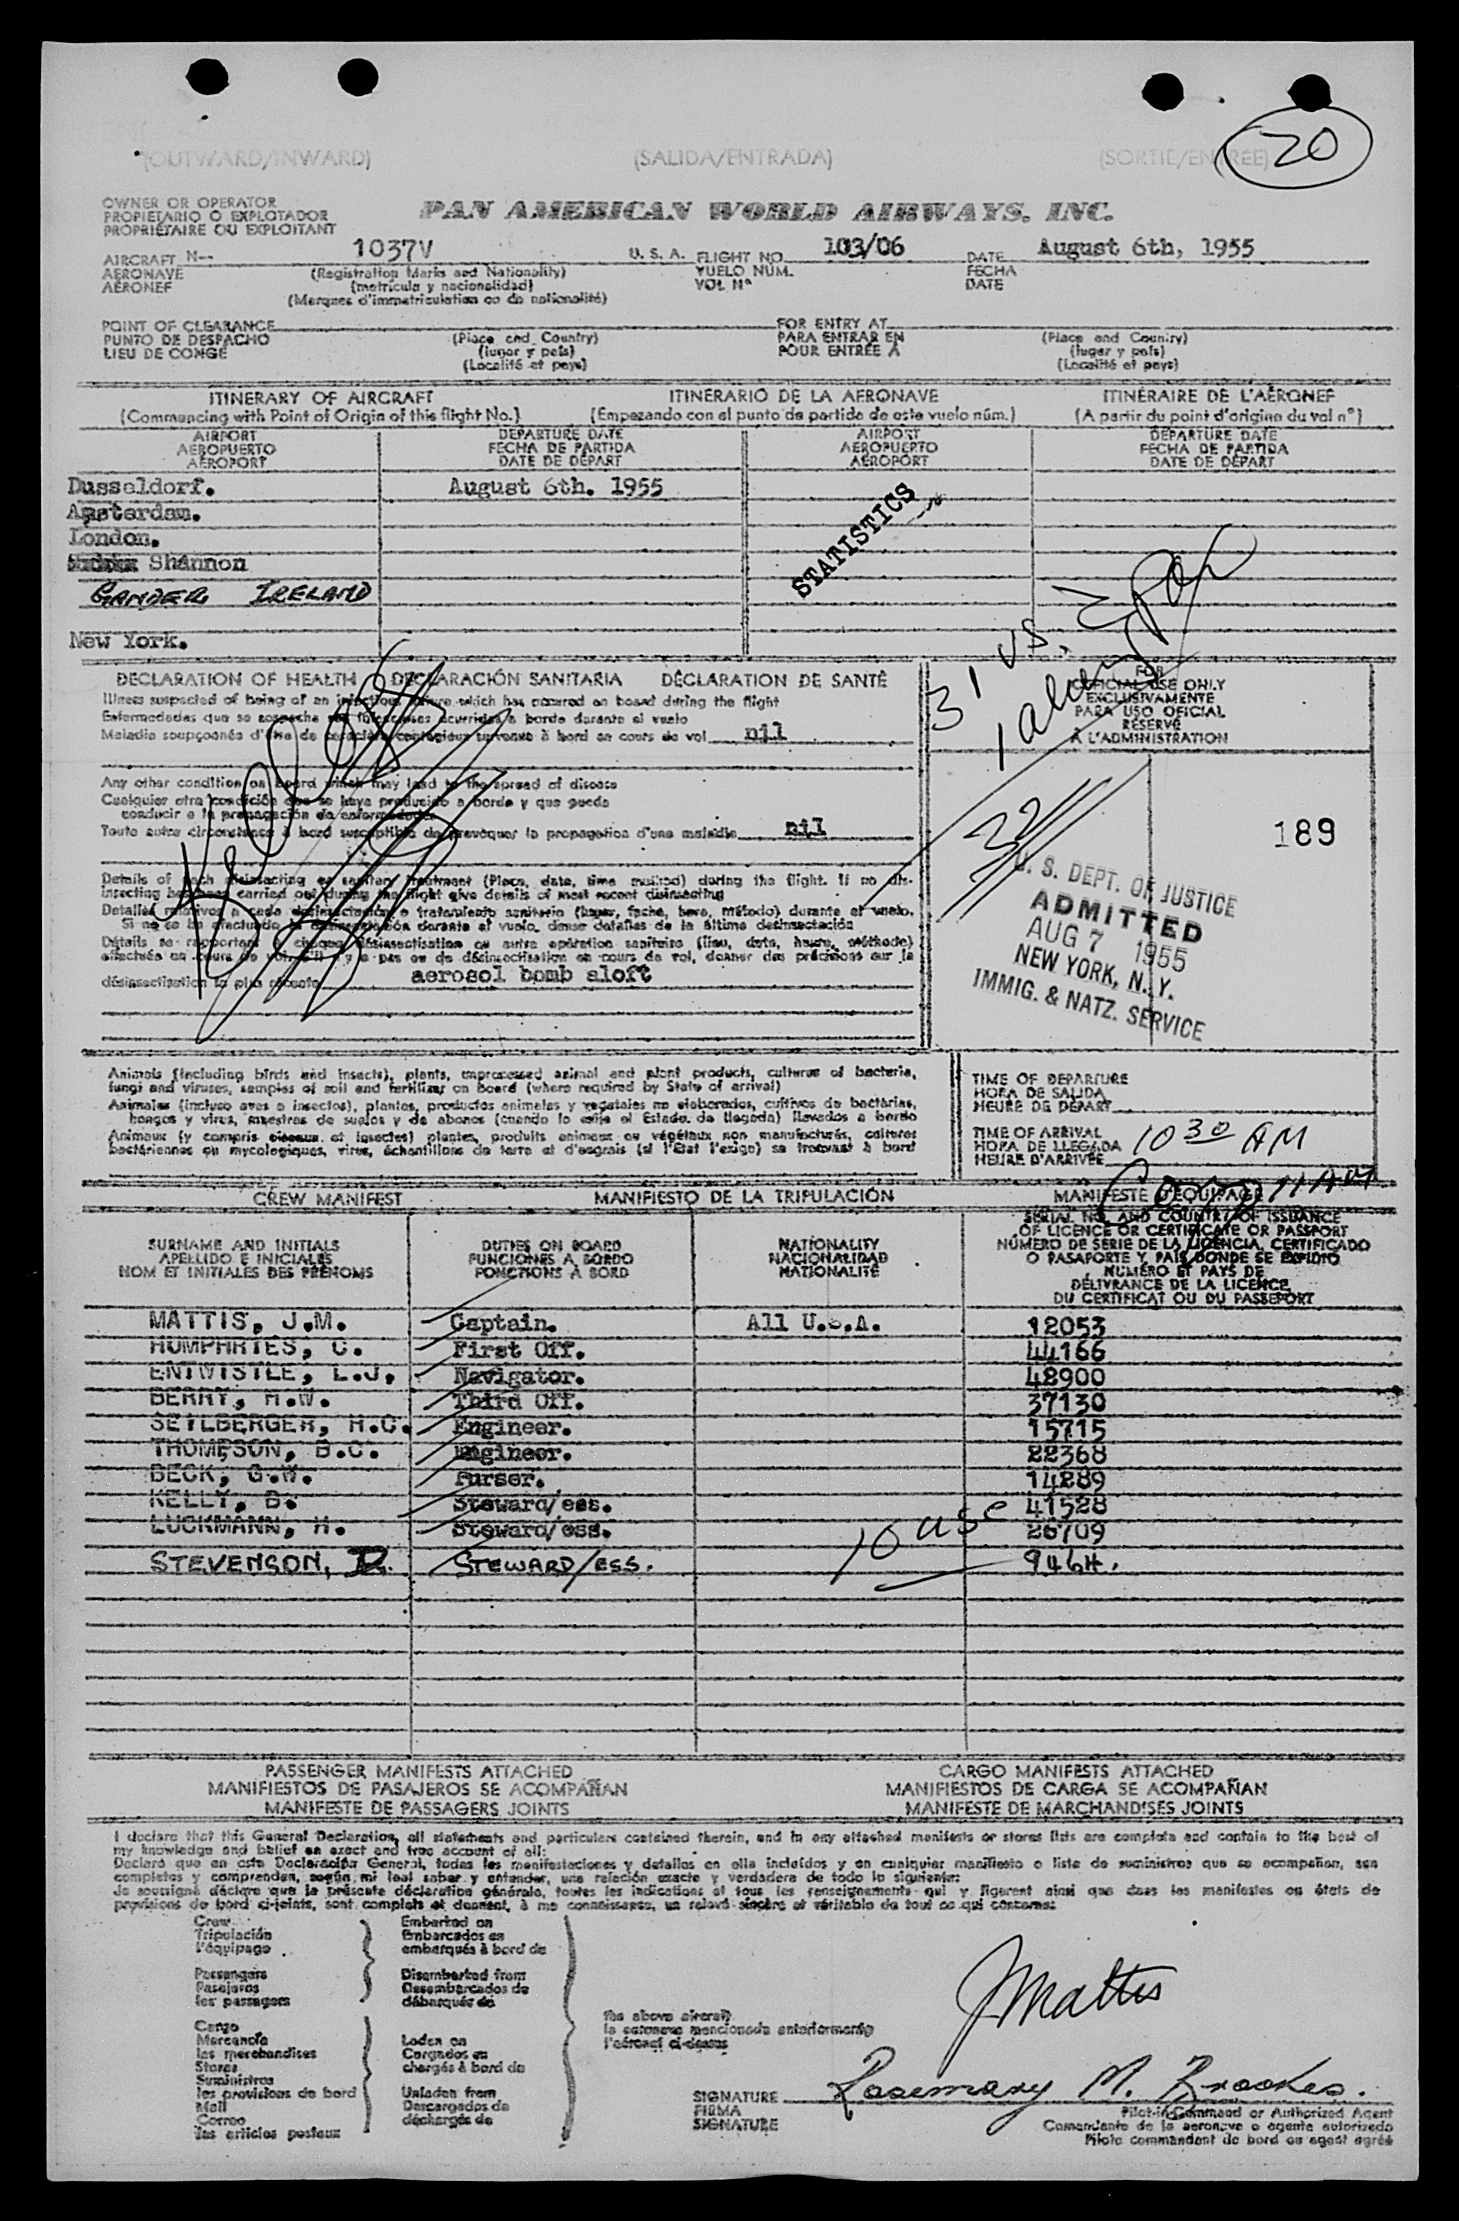 20
(OUTWARD/INWARD) (SALIDA/ENTRADA) (SORTIE/ENTRÉE)
OWNER OR OPERATOR
PROPIETARIO O EXPLOTADOR
PROPRIÉTAIRE OU EXPLOITANT
PAN AMERICAN WORLD AIRWAYS, INC.
AIRCRAFT N-- 1037V U. S. A. FLIGHT NO. 103/06 DATE August 6th, 1955
AERONAVE (Registration Marks and Nationality) VUELO NÚM. FECHA
AÉRONEF (matrícula y nacionalidad) VOL Nº DATE
(Marques d'immatriculation ou de nationalité)
POINT OF CLEARANCE FOR ENTRY AT
PUNTO DE DESPACHO (Place and Country) PARA ENTRAR EN (Place and Country)
LIEU DE CONGÉ (lugar y país) POUR ENTRÉE A (lugar y país)
(Localité et pays) (Localité et pays)
ITINERARY OF AIRCRAFT ITINERARIO DE LA AERONAVE ITINÉRAIRE DE L'AÉRONEF
(Commencing with Point of Origin of this flight No.) (Empezando con el punto de partida de este vuelo núm.) (A partir du point d'origine du vol nº)
AIRPORT DEPARTURE DATE AIRPORT DEPARTURE DATE
AEROPUERTO FECHA DE PARTIDA AEROPUERTO FECHA DE PARTIDA
AÉROPORT DATE DE DÉPART AÉROPORT DATE DE DÉPART
Dusseldorf. August 6th. 1955
Amsterdam.
London.
Shannon
GANDER IRELAND
New York.
STATISTICS
31 US.
DECLARATION OF HEALTH DECLARACIÓN SANITARIA DÉCLARATION DE SANTÉ
Illness suspected of being of an infectious nature which has occurred on board during the flight
Enfermedades que se sospeche sean infecciosas ocurridas a bordo durante el vuelo
Maladie soupçonnée d'être de caractère contagieux survenue à bord en cours de vol nil
Any other condition on board which may lead to the spread of disease
Cualquier otra condición que se haya producido a bordo y que pueda
conducir a la propagación de enfermedades
Toute autre circonstance à bord susceptible de provoquer la propagation d'une maladie nil
Details of each disinsecting or sanitary treatment (Place, date, time method) during the flight. If no dis-
insecting has been carried out during the flight give details of most recent disinsecting
Detalles relativos a cada desinsectación o tratamiento sanitario (lugar, fecha, hora, método) durante el vuelo.
Si no se ha efectuado la desinsectación durante el vuelo, dense detalles de la última desinsectación
Détails se rapportant à chaque désinsectisation ou autre opération sanitaire (lieu, date, heure, méthode)
effectuée en cours de vol. S'il n'y a pas eu de désinsectisation en cours de vol, donner des précisions sur la
désinsectisation la plus récente aerosol bomb aloft
FOR
OFFICIAL USE ONLY
EXCLUSIVAMENTE
PARA USO OFICIAL
RÉSERVÉ
À L'ADMINISTRATION
32
189
U. S. DEPT. OF JUSTICE
ADMITTED
AUG 7 1955
NEW YORK, N. Y.
IMMIG. & NATZ. SERVICE
Animals (including birds and insects), plants, unprocessed animal and plant products, cultures of bacteria,
fungi and viruses, samples of soil and fertilizer on board (where required by State of arrival)
Animales (incluso aves e insectos), plantas, productos animales y vegetales no elaborados, cultivos de bactérias,
hongos y virus, muestras de suelos y de abonos (cuando lo exija el Estado de llegada) llevados a bordo
Animaux (y compris oiseaux et insectes) plantes, produits animaux ou végétaux non manufacturés, cultures
bactériennes ou mycologiques, virus, échantillons de terre et d'engrais (si l'État l'exige) se trouvant à bord
TIME OF DEPARTURE
HORA DE SALIDA
HEURE DE DÉPART
TIME OF ARRIVAL
HORA DE LLEGADA 10 30 AM
HEURE D'ARRIVÉE
CREW MANIFEST MANIFIESTO DE LA TRIPULACIÓN MANIFESTE D'EQUIPAGE
SURNAME AND INITIALS DUTIES ON BOARD NATIONALITY SERIAL NO. AND COUNTRY OF ISSUANCE
APELLIDO E INICIALES FUNCIONES A BORDO NACIONALIDAD OF LICENCE OR CERTIFICATE OR PASSPORT
NOM ET INITIALES DES PRÉNOMS FONCTIONS À BORD NATIONALITÉ NÚMERO DE SERIE DE LA LICENCIA, CERTIFICADO
O PASAPORTE Y PAÍS DONDE SE EXPIDIÓ
NUMÉRO ET PAYS DE
DÉLIVRANCE DE LA LICENCE,
DU CERTIFICAT OU DU PASSEPORT
MATTIS, J.M. Captain. All U.S.A. 12053
HUMPHRIES, C. First Off. 44166
ENTWISTLE, L.J. Navigator. 48900
BERRY, H.W. Third Off. 37130
SEYLBERGER, H.C. Engineer. 15715
THOMPSON, B.C. Engineer. 22368
BECK, G.W. Purser. 14289
KELLY, B. Steward/ess. 41528
LUCKMANN, H. Steward/ess. 26709
STEVENSON, D. STEWARD/ESS. 9464.
10 usc
PASSENGER MANIFESTS ATTACHED CARGO MANIFESTS ATTACHED
MANIFIESTOS DE PASAJEROS SE ACOMPAÑAN MANIFIESTOS DE CARGA SE ACOMPAÑAN
MANIFESTE DE PASSAGERS JOINTS MANIFESTE DE MARCHANDISES JOINTS
I declare that this General Declaration, all statements and particulars contained therein, and in any attached manifests or stores lists are complete and contain to the best of
my knowledge and belief an exact and true account of all:
Declaro que en esta Declaración General, todas las manifestaciones y detalles en ella incluídos y en cualquier manifiesto o lista de suministros que se acompañan, son
completos y comprenden, según mi leal saber y entender, una relación exacta y verdadera de todo lo siguiente:
Je soussigné déclare que la présente déclaration générale, toutes les indications et tous les renseignements qui y figurent ainsi que dans les manifestes ou états de
provisions de bord ci-joints, sont complets et donnent, à ma connaissance, un relevé sincère et véritable de tout ce qui concerne:
Crew Embarked on
Tripulación Embarcados en
l'équipage embarqués à bord de
Passengers Disembarked from
Pasajeros Desembarcados de
les passagers débarqués de
Cargo the above aircraft
Mercancía Laden on la aeronave mencionada anteriormente
les marchandises Cargados en l'aéronef ci-dessus
Stores chargés à bord de
Suministros
les provisions de bord Unladen from
Mail Descargados de
Correo déchargés de
les articles postaux
J Mattis
SIGNATURE Rosemary M. Brookes.
FIRMA Pilot-in-Command or Authorized Agent
SIGNATURE Comandante de la aeronave o agente autorizado
Pilote commandant de bord ou agent agréé